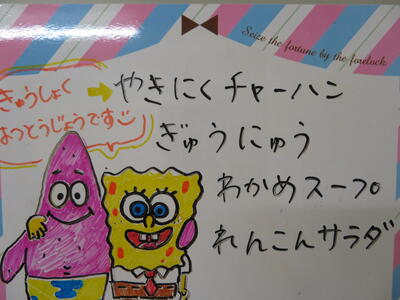 Seize the fortune by the forelock.
きゅうしょく
はっとうじょうです
→やきにくチャーハン
ぎゅうにゅう
わかめスープ
れんこんサラダ